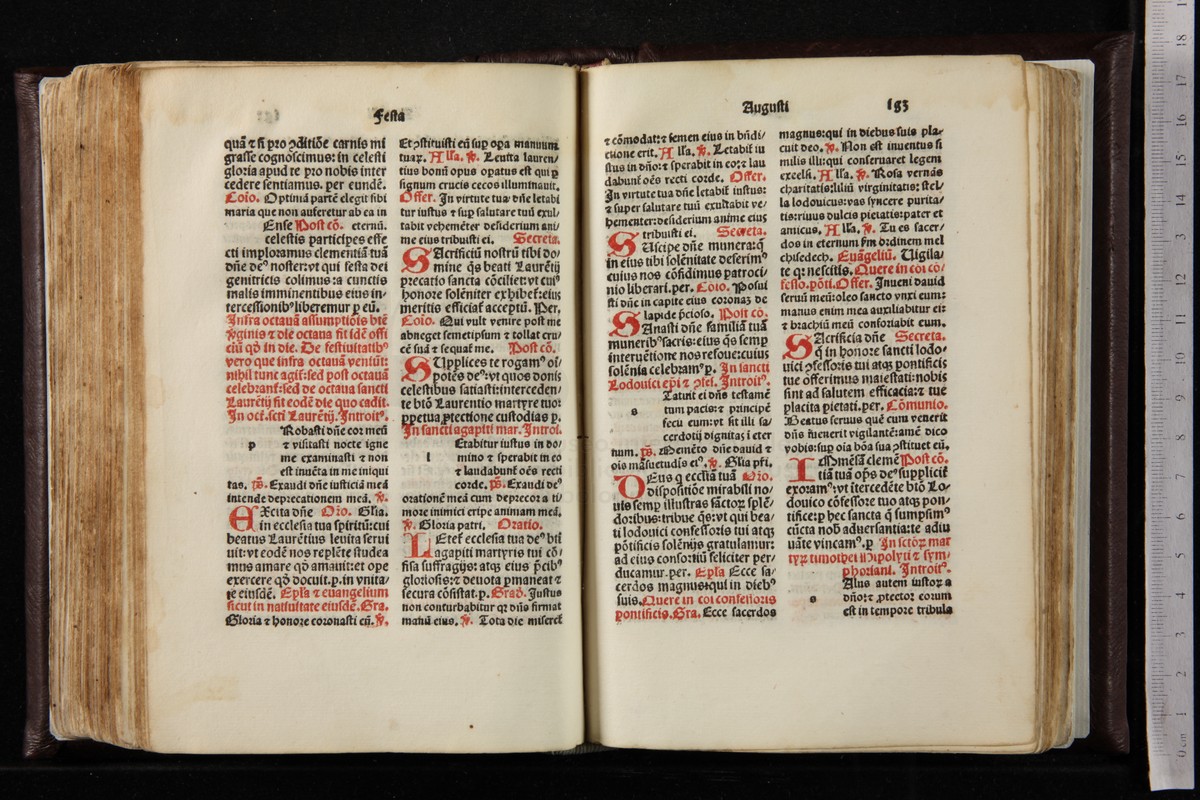 Festa
quā ⁊ ñ pro ↄditiōe carnis mi
grasse cognoscimus: in celesti
gloria apud te pro nobis inter
cedere sentiamus. per eundē.
Coīo. Optimā partē elegit sibi
maria que non auferetur ab ea in
Ense Post cō. eternū.
celestis participes effe
cti imploramus clementiā tuā
dñe deꝰ noster: vt qui festa dei
genitricis colimus: a cunctis
malis imminentibus eius in-
tercessionibꝰ liberemur ꝑ eū.
Infra octauā assumptiōis btē
v̄ginis ⁊ die octaua fit idē offi
ciū qđ in die. De festiuitatibꝰ
vero que infra octauā veniūt:
nihil tunc agit̄: sed post octauā
celebrant̄: sed de octaua sancti
Laurētij fit eodē die quo cadit.
In oct. scti Laurētij. Introitꝰ.
Robasti dñe cor meū
p ⁊ visitasti nocte igne
me examinasti ⁊ non
est inuēta in me iniqui
tas. ps̄. Exaudi dñe iusticiā meā
intende deprecationem meā. v̄.
EXcita dñe Oro. Glīa.
in ecclesia tua spiritū: cui
beatus Laurētius leuita serui
uit: vt eodē nos replēte studea
mus amare qđ amauit: et ope
exercere qđ docuit. p. in vnita/
te eiusdē. Epl̄a ⁊ euangelium
sicut in natiuitate eiusdē. Gra.
Gloria ⁊ honore coronasti eū. v̄.
Et ↄstituisti eū sup opa manuum
tuaꝝ. Alla. v̄. Leuita lauren/
tius bonū opus opatus est qui ꝑ
signum crucis cecos illuminauit.
Offer. In virtute tua dñe letabi
tur iustus ⁊ sup salutare tuū exul/
tabit vehemēter desiderium ani/
me eius tribuisti ei. Secreta.
SAcrificiū nostrū tibi do/
mine q̄s beati Laurētij
precatio sancta cōciliet: vt cuiꝰ
honore solēniter exhibet̄: eius
meritis efficiat̄ acceptū. Per.
Coīo. Qui vult venire post me
abneget semetipsum ⁊ tollat cru/
cē suā ⁊ sequat̄ me. Post cō.
SUpplices te rogamꝰ oī/
potēs deꝰ: vt quos donis
celestibus satiasti: interceden/
te btō Laurentio martyre tuo:
ꝑpetua ꝓtectione custodias ꝑ.
In sancti agapiti mar. Introī.
Etabitur iustus in do/
l mino ⁊ sperabit in eo
⁊ laudabunt̄ oēs recti
corde. ps̄. Exaudi deꝰ
orationē meā cum deprecor a ti/
more inimici eripe animam meā.
v̄. Gloria patri. Oratio.
LEtet̄ ecclesia tua deꝰ bt̄i
agapiti martyris tui cō/
fisa suffragijs: atqꝫ eius p̄cibꝰ
gloriosis: ⁊ deuota ꝑmaneat ⁊
secura cōsistat. p. Grad̄. Iustus
non conturbabitur qꝛ dñs firmat
manū eius. v̄. Tota die miseret̄
Augusti 183
⁊ cōmodat: ⁊ semen eius in bn̄di/
ctione erit. Alla. v̄. Letabit̄ iu
stus in dño: ⁊ sperabit in eo: ⁊ lau
dabunt̄ oēs recti corde. Offer.
In virtute tua dñe letabit̄ iustus:
⁊ super salutare tuū exultabit ve/
hementer: desiderium anime eius
tribuisti ei. Secreta.
SUscipe dñe munera: q̄
in eius tibi solēnitate deferimꝰ
cuius nos cōfidimus patroci/
nio liberari. per. Coīo. Posui
sti dñe in capite eius coronaꝫ de
lapide p̄cioso. Post cō.
SAtiasti dñe familiā tuā
muneribꝰ sacris: eius q̄s semp
interuētione nos refoue: cuius
solēnia celebramꝰ ꝑ. In sancti
Lodouici epī ⁊ ↄfes. Introitꝰ.
Tatuit ei dñs testamē
s tum pacis: ⁊ principē
fecu eum: vt sit illi sa/
cerdotij dignitas i eter
num. ps̄. Memēto dñe dauid ⁊
ois māsuetudīs eiꝰ. v̄. Glia pr̄i.
DEus q̄ ecclīā tuā Oro.
dispositiōe mirabili no/
uis semp illustras sāctoꝝ splē/
doribus: tribue q̄s: vt qui bea/
ti lodouici confessoris tui atqꝫ
pōtificis solēnijs gratulamur:
ad eius consortiū feliciter per/
ducamur. per. Epl̄a Ecce sa/
cerdos magnus: qui in diebꝰ
suis. Quere in coī confessoris
pontificis. Gra. Ecce sacerdos
magnus: qui in diebus suis pla-
cuit deo. v̄. Non est inuentus si
milis illi: qui conseruaret legem
excelsi. Alla. v̄. Rosa vernās
charitatis: liliū virginitatis: stel/
la lodouicus: vas syncere purita/
tis: riuus dulcis pietatis: pater et
amicus. Alla. v̄. Tu es sacer/
dos in eternum ẜm ordinem mel
chisedech. Euāgeliū. Uigila/
te qꝛ nescitis. Quere in coī co/
fesso. pōti. Offer. Inueni dauid
seruū meū: oleo sancto vnxi eum:
manus enim mea auxiliabitur ei:
⁊ brachiū meū confortabit eum.
SAcrificia dñe Secreta.
q̄ in honore sancti lodo/
uici ↄfessoris tui atqꝫ pontificis
tue offerimus maiestati: nobis
sint ad salutem efficacia: ⁊ tue
placita pietati. per. Cōmunio.
Beatus seruus quē cum venerit
dñs īuenerit vigilantē: amē dico
vobis: sup oīa bōa sua ↄstituet eū.
IMmēsā clemē Post cō.
tiā tuā ops̄ deꝰ supplicit̄
exoramꝰ: vt ītercedēte btō Lo/
douico cōfessore tuo atqꝫ pon/
tifice: ꝑ hec sancta q̄ sumpsimꝰ
cūcta nob̄ aduersantia: te adiu
uāte vincamꝰ. ꝑ In sctōꝝ mar
tyꝝ timothei Hipolyti ⁊ sym/
phoriani. Introitꝰ.
Alus autem iustoꝝ a
s dño: ⁊ ꝓtector eorum
est in tempore tribula